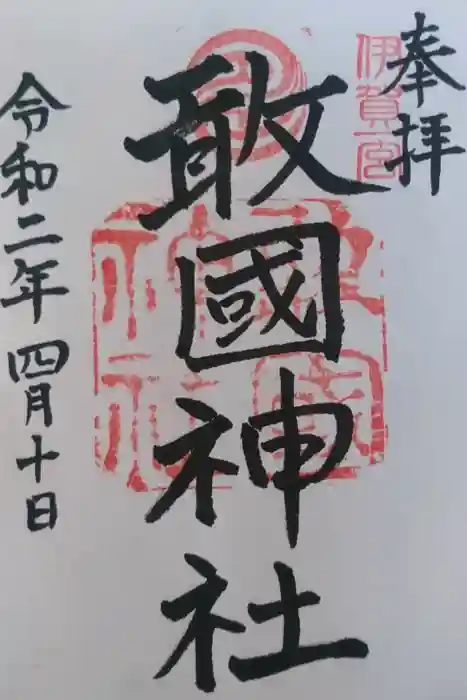 奉拝
伊賀一宮
敢國神社
令和二年四月十日